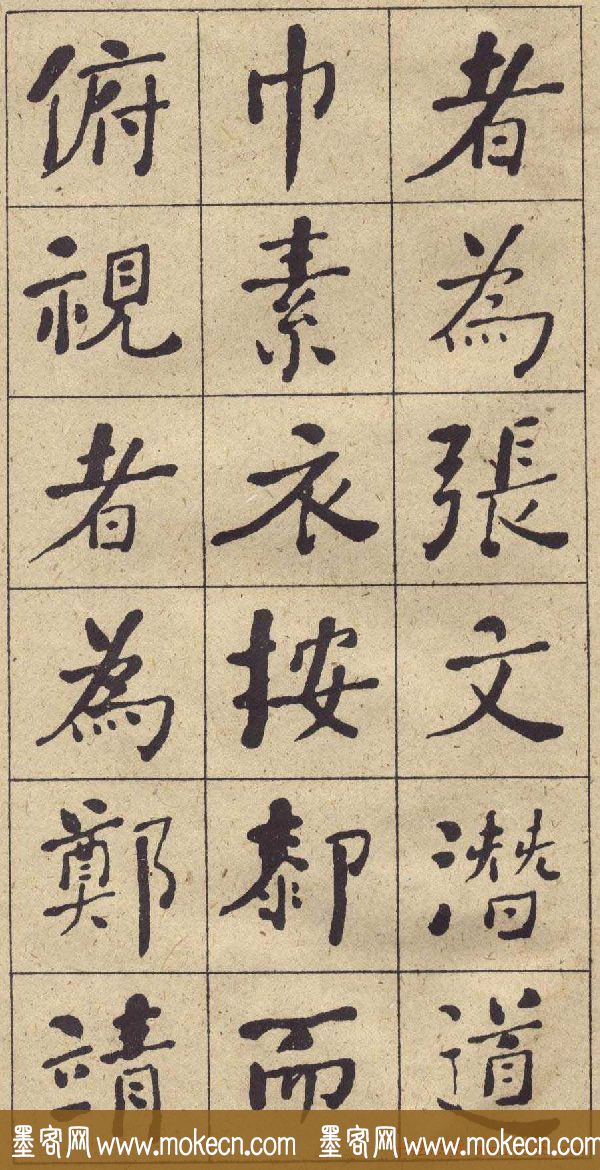 者為張文潛道
巾素衣按厀而
俯視者為鄭靖
墨客网www.mokecn.com 墨客网www.mokecn.com